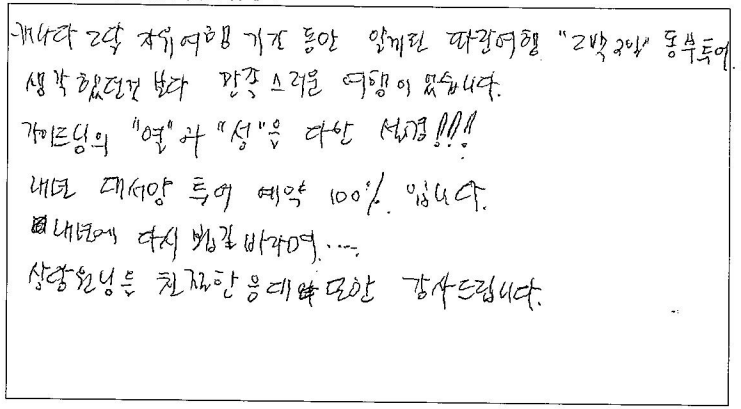 캐나다 2달 자유여행 기간 동안 알게된 파란여행 "2박 3일" 동부투어.
생각 했던것 보다 만족 스러운 여행이 었습니다.
가이드님의 "열"과 "성"을 다한 설명!!!
내년 대서양 투어 예약 100%. 입니다.
내년에 다시 뵙길 바라며.....
상담원님들 친절한 응대 또한 감사드립니다.